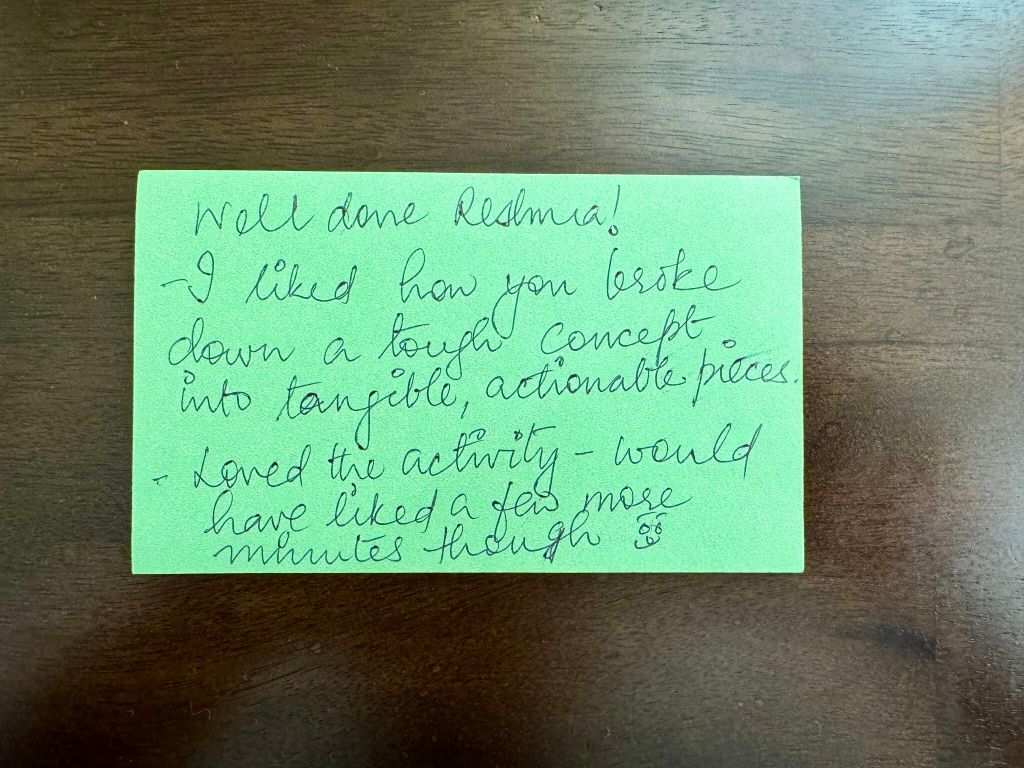 Well done Reshmia!
- I liked how you broke
down a tough concept
into tangible, actionable pieces.
- Loved the activity - would
have liked a few more
minutes though